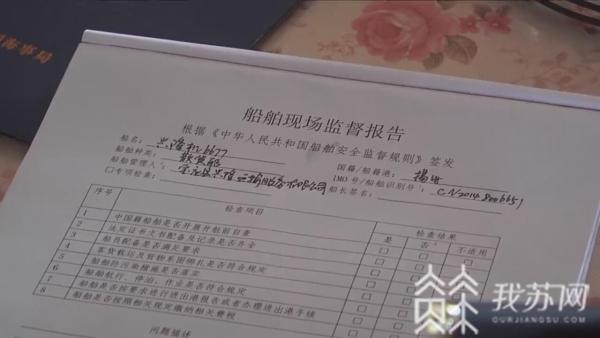 海事局
船舶现场监督报告
根据《中华人民共和国船舶安全监督规则》签发
船名： 兴隆机6677 国籍/船籍港： 扬州
船舶种类： 散货船 IMO号/船舶识别号： CN20148006651
船舶管理人： 宝应县兴隆运输服务有限公司 船长签名：
□专项检查：
序号 检查项目 检查结果
是 否 不适用
1 中国籍船舶是否开展开航前自查 □ □ □
2 法定证书文书配备及记录是否齐全 □ □ □
3 船员配备是否满足要求 □ □ □
4 客货载运及货物系固绑扎是否符合规定 □ □ □
5 船舶防污染措施是否落实 □ □ □
6 船舶航行、停泊、作业是否符合规定 □ □
7 船舶是否按要求进行进出港报告或者办理进出港手续
8 船舶是否按照相关规定缴纳相关费税
问题描述
我苏网
OURJIANGSU.COM